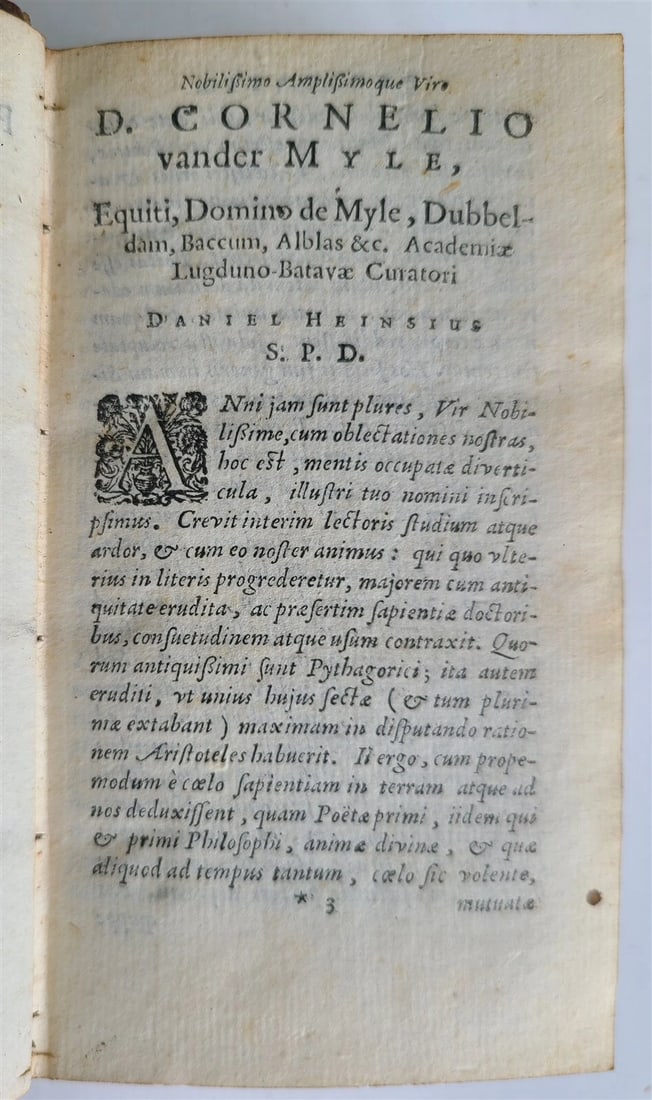 Nobilißimo Amplißimoque Viro
D. CORNELIO
vander MYLE,
Equiti, Domino de Myle, Dubbel-
dam, Baccum, Alblas &c. Academiæ
Lugduno-Batavæ Curatori
DANIEL HEINSIUS
S. P. D.
ANni jam ſunt plures, Vir Nobi-
lißime, cum oblectationes noſtras,
hoc eſt, mentis occupatæ diverti-
cula, illuſtri tuo nomini inſcri-
pſimus. Crevit interim lectoris ſtudium atque
ardor, & cum eo noſter animus: qui quo vlte-
rius in literis progrederetur, majorem cum anti-
quitate erudita, ac præſertim ſapientiæ doctori-
bus, conſuetudinem atque uſum contraxit. Quo-
rum antiquißimi ſunt Pythagorici; ita autem
eruditi, vt unius hujus ſectæ (& tum pluri-
mæ extabant) maximam in diſputando ratio-
nem Ariſtoteles habuerit. Ii ergo, cum prope-
modum è cœlo ſapientiam in terram atque ad
nos deduxiſſent, quam Poëtæ primi, iidem qui
& primi Philoſophi, animæ divinæ, & quæ
aliquod ad tempus tantum, cœlo ſic volente,
* 3 mutuatæ